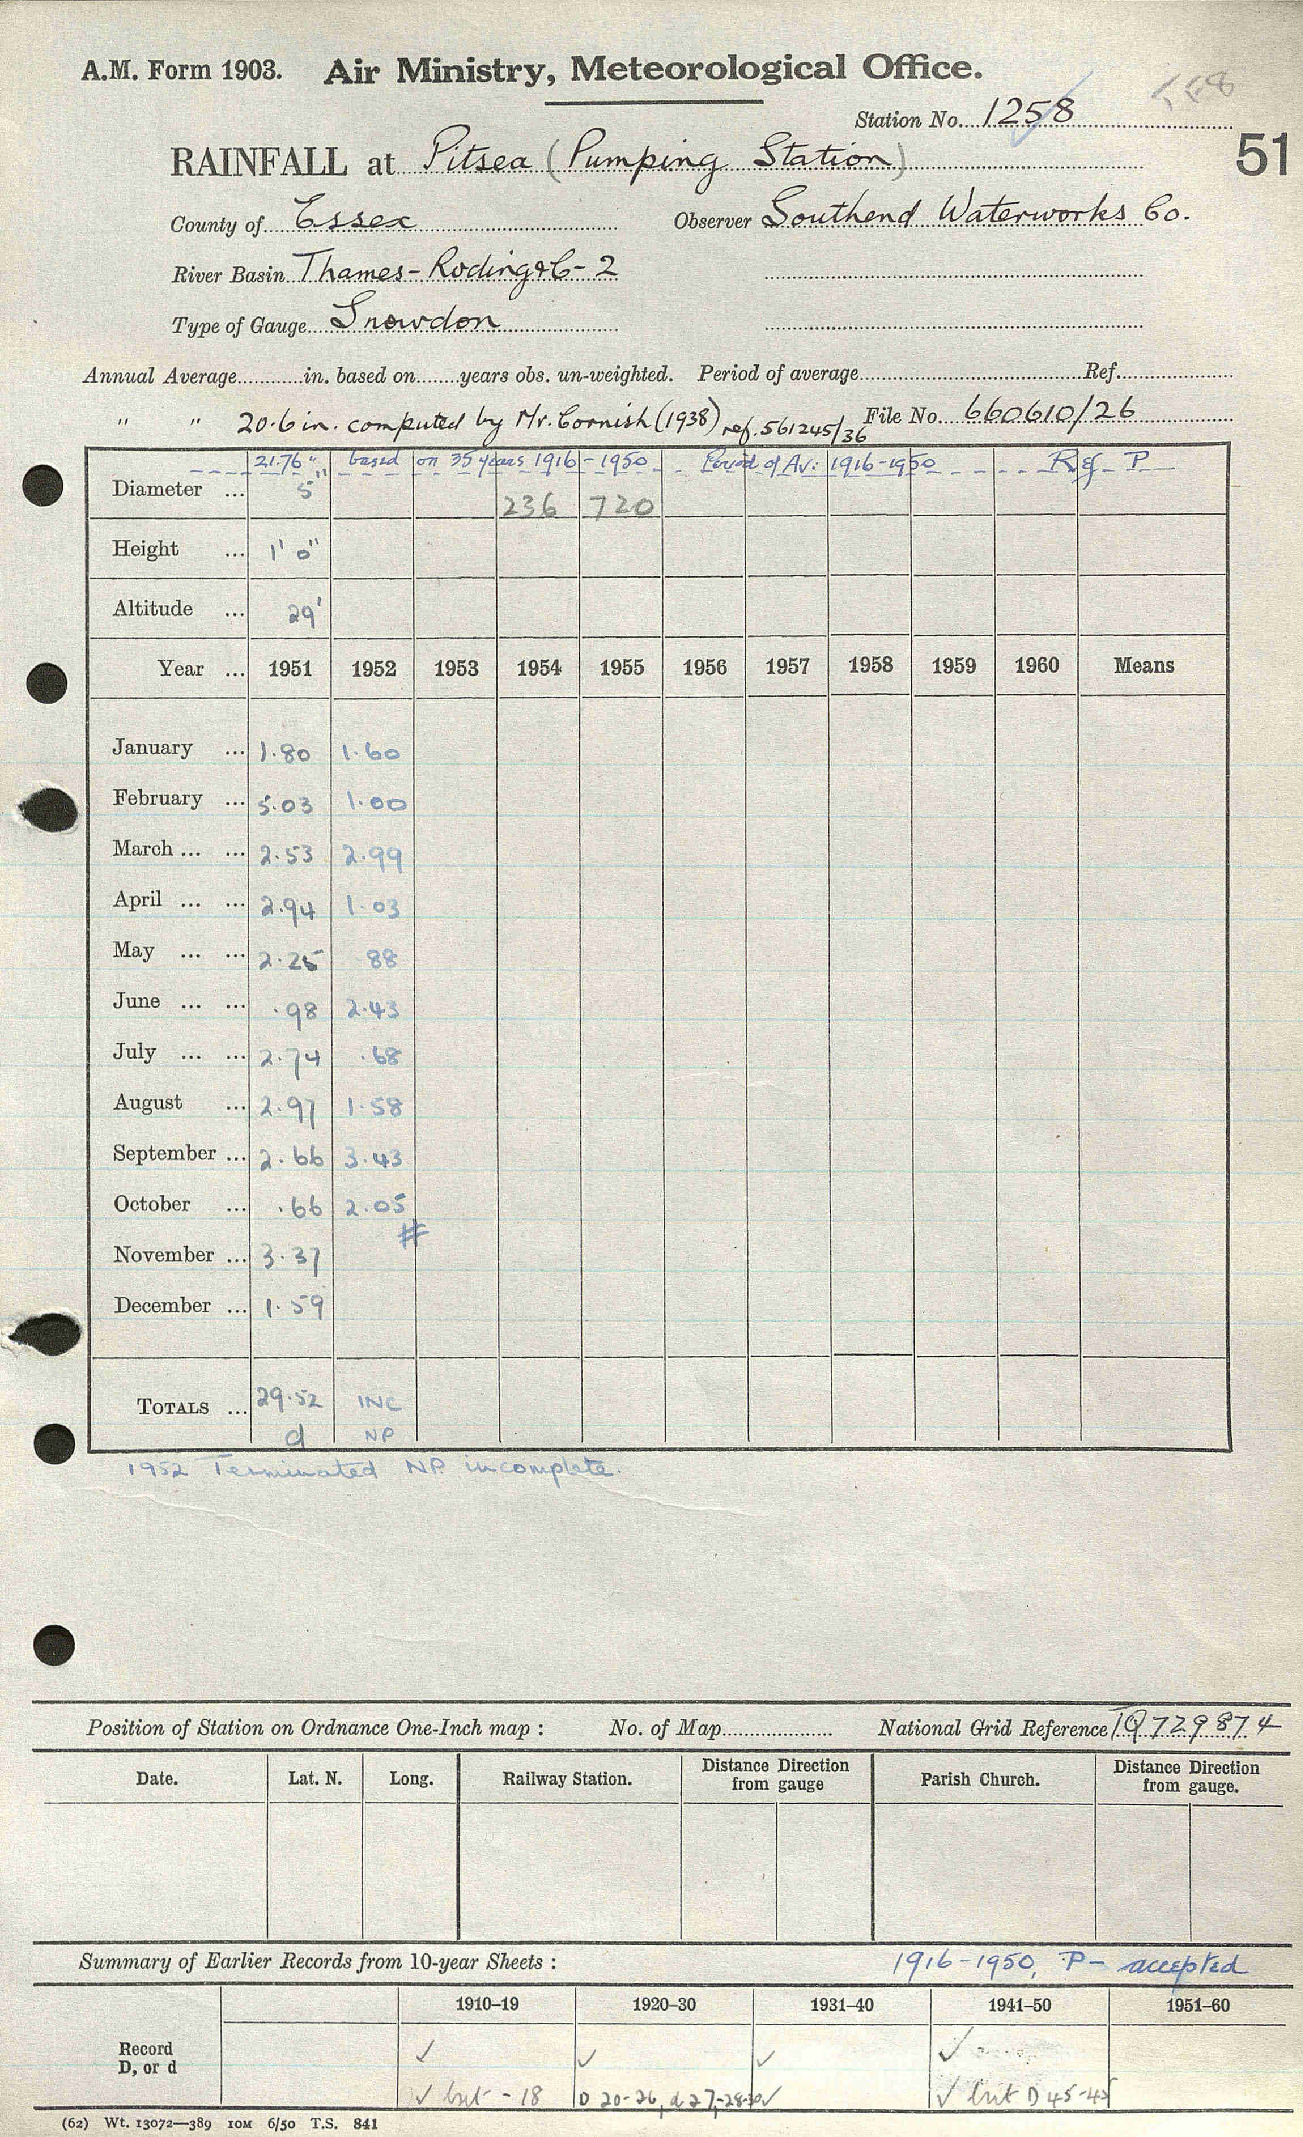 A.M. Form 1903. Air Ministry, Meteorological Office.
Station No. 1258
51
RAINFALL at Pitsea (Pumping Station)
County of Essex Observer Southend Waterworks Co.
River Basin Thames-Roding &C-2
Type of Gauge Snowdon
Annual Average............in. based on........years obs. un-weighted. Period of average Ref.
" " 20.6 in. computed by Mr. Cornish (1938) ref. 561245/36 File No. 660610/26
21.76" based on 35 years 1916-1950 Period of Av: 1916-1950 Ref P
Diameter ... 5" 236 720
Height ... 1' 0"
Altitude ... 29'
Year ... 1951 1952 1953 1954 1955 1956 1957 1958 1959 1960 Means
January ... 1.80 1.60
February ... 5.03 1.00
March ... ... 2.53 2.99
April ... ... 2.94 1.03
May ... ... 2.25 88
June ... ... .98 2.43
July ... ... 2.74 .68
August ... 2.97 1.58
September ... 2.66 3.43
October ... .66 2.05
#
November ... 3.37
December ... 1.59
TOTALS ... 29.52 INC
d NP
1952 Terminated NP incomplete.
Position of Station on Ordnance One-Inch map : No. of Map National Grid Reference TQ 729874
Date. Lat. N. Long. Railway Station. Distance Direction from gauge Parish Church. Distance Direction from gauge.
Summary of Earlier Records from 10-year Sheets : 1916-1950, P- accepted
1910-19 1920-30 1931-40 1941-50 1951-60
Record D, or d ✓ ✓ ✓ ✓
✓ but - 18 D 20-26, d 27,-28-30 ✓ ✓ but D 45-45
(62) Wt. 13072—389 10M 6/50 T.S. 841